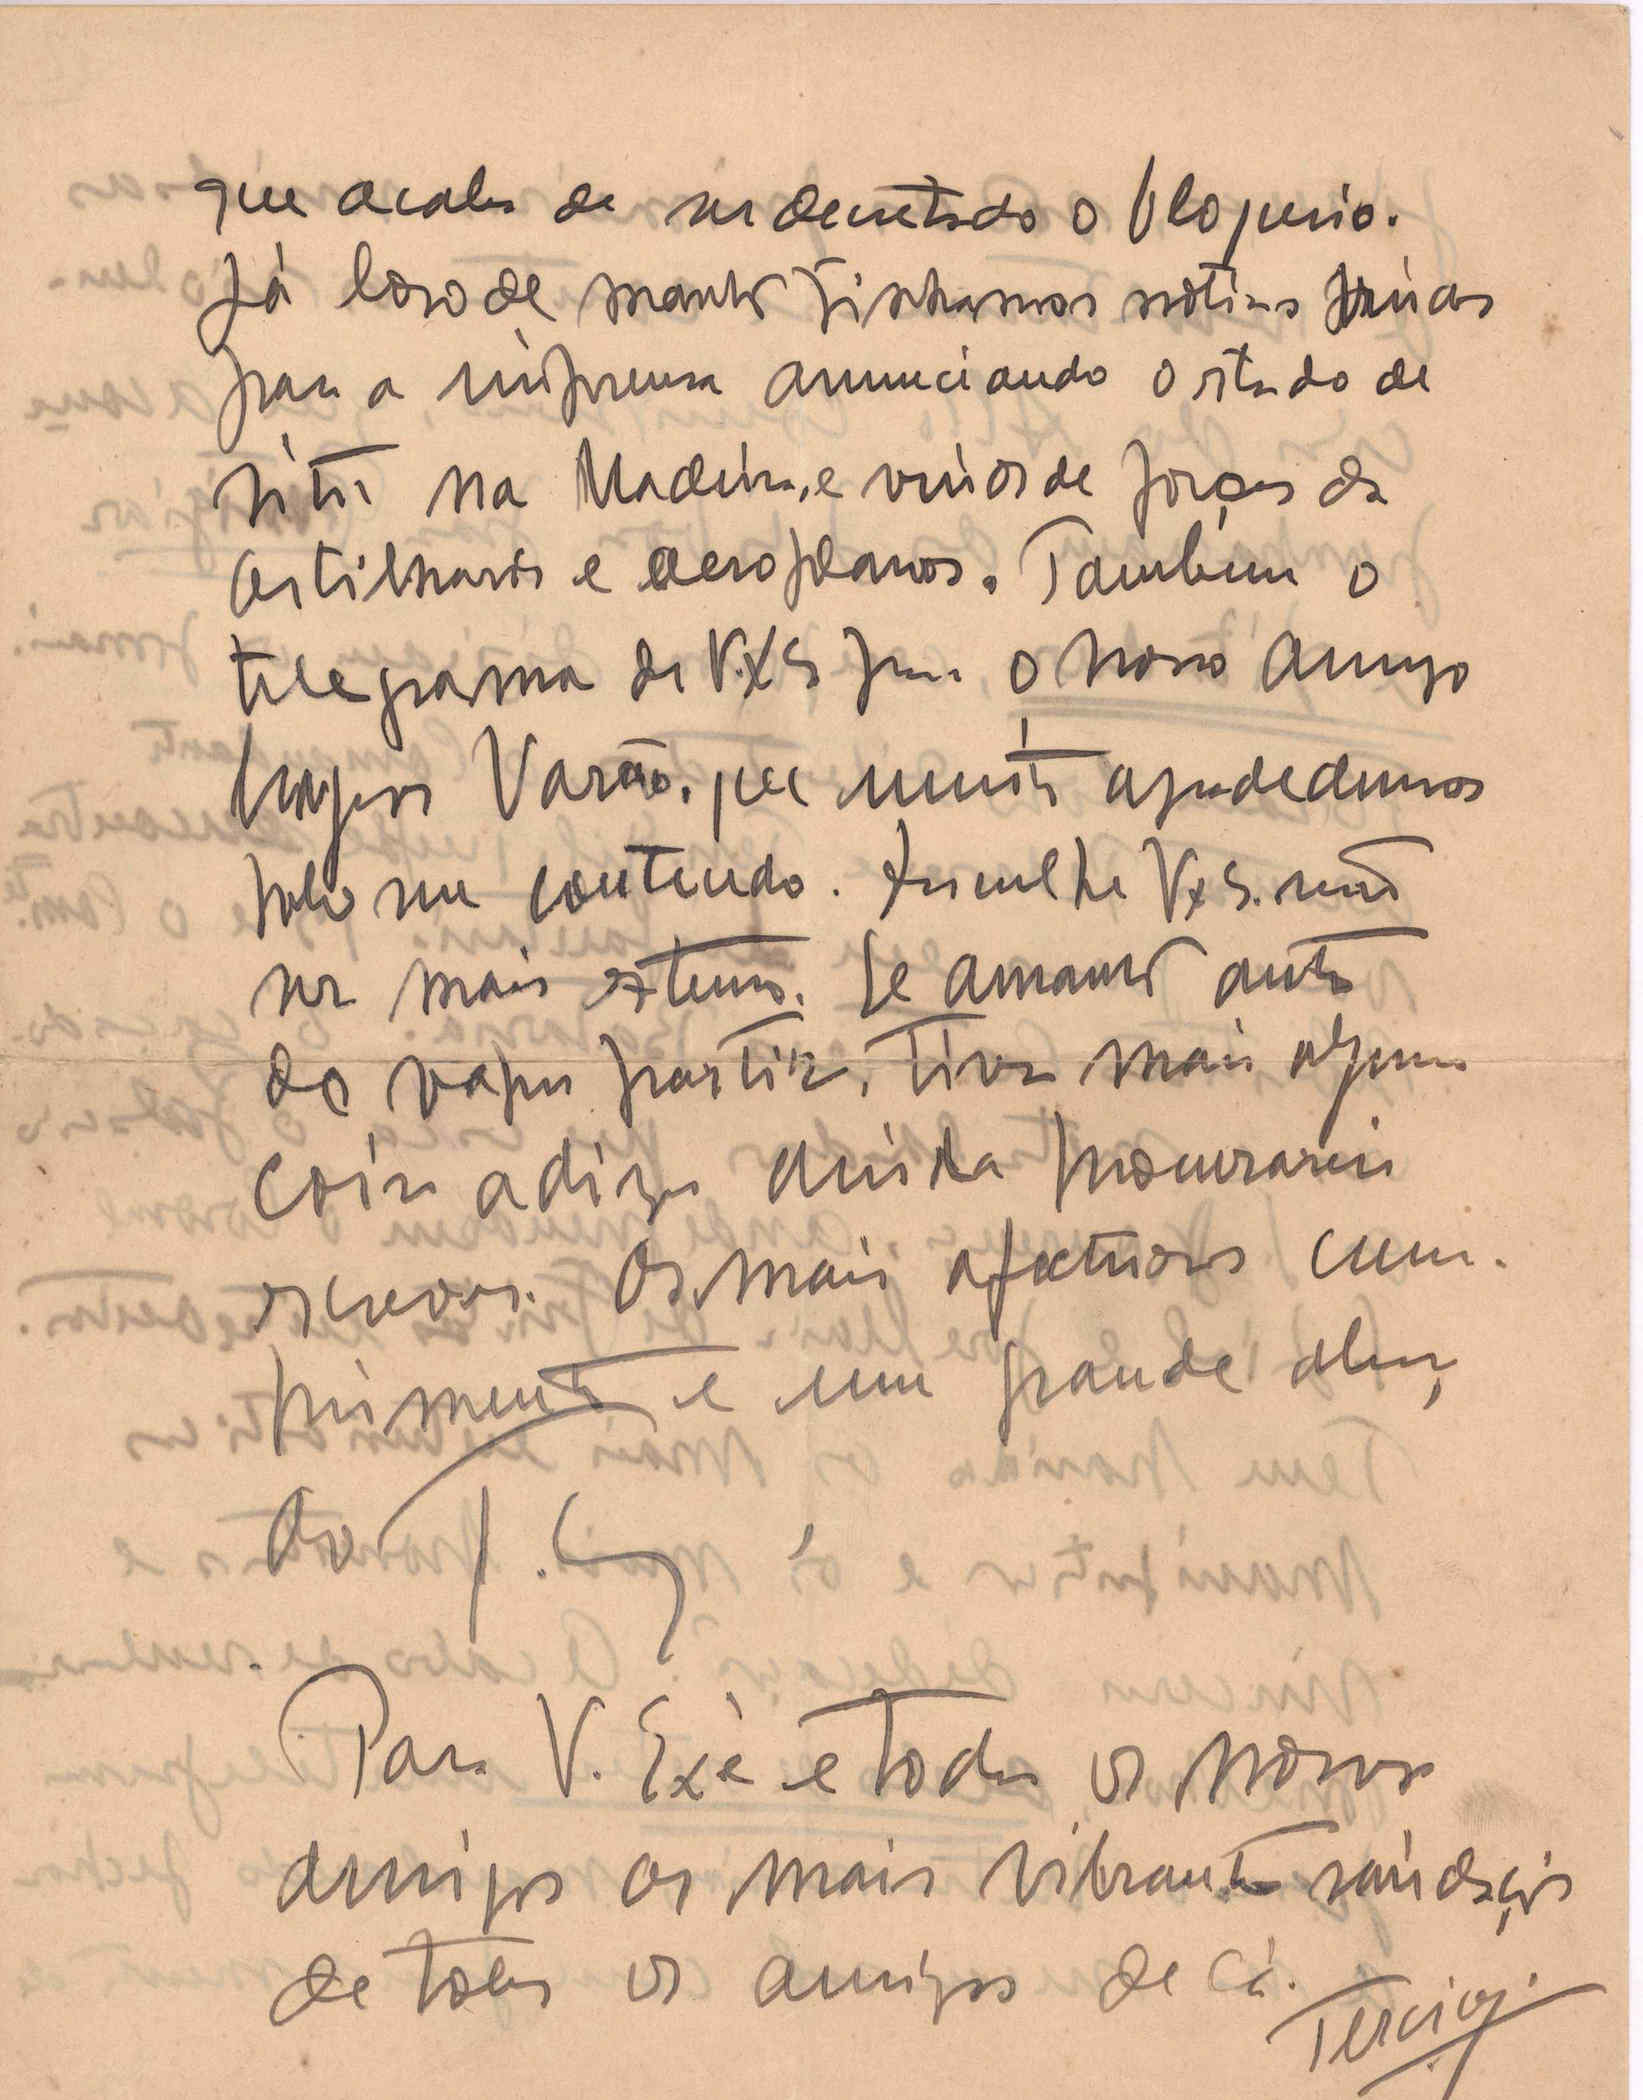 que acaba de ser decretado o bloqueio.
Já hoje de manhã tinhamos noticias vindas
para a imprensa anunciando o estado de
sitio na Madeira, e envios de forças de
artilharia e aeroplanos. Também o
telegrama de V. Ex.ª para o nosso amigo
Varão, que muito agradecemos
pelo seu conteudo. Desculpe V. Ex.ª não
ser mais extenso. Se amanhã antes
do vapor partir, tiver mais alguma
coisa a dizer ainda procurarei
escrever. Os mais afectuosos cum-
primentos e um grande abraço
do
Para V. Exª e todos os nossos
amigos as mais vibrantes saudações
de todos os amigos de cá.